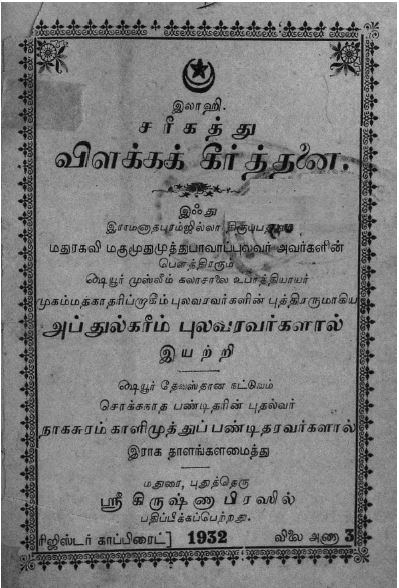 இலாஹி.
சரீகத்து
விளக்கக் கீர்த்தனை.
இஃது
இராமனாதபுரம்ஜில்லா
மதுரகவி மகுமுதுமுத்துபாவாப்புலவர் அவர்களின்
பௌத்திரரும்
ஷெயூர் முஸ்லீம் கலாசாலை உபாத்தியாயர்
முகம்மதுகாதரிப்றாகீம் புலவரவர்களின் புத்திரருமாகிய
அப்துல்கரீம் புலவரவர்களால்
இயற்றி
ஷெயூர் தேவஸ்தான நட்டுவம்
சொக்கநாத பண்டிதரின் புதல்வர்
நாகசுரம் காளிமுத்துப் பண்டிதரவர்களால்
இராக தாளங்களமைத்து
மதுரை, புதுத்தெரு
ஸ்ரீ கிருஷ்ண பிரஸில்
பதிப்பிக்கப்பெற்றது.
ரிஜிஸ்டர் காப்பிரைட்] 1932 விலை அணா 3